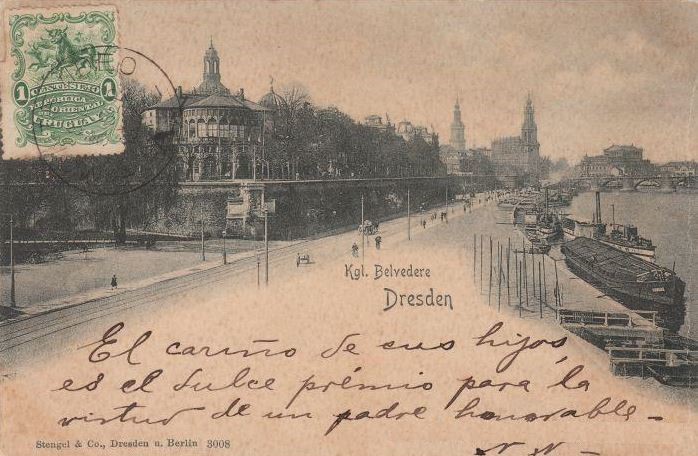 1 CENTESIMO 1
REPÚBLICA
ORIENTAL
DEL
URUGUAY
EO
Kgl. Belvedere
Dresden
El cariño de sus hijos,
es el dulce prémio para la
virtud de un padre honorable_
N N _
Stengel & Co., Dresden u. Berlin 3008